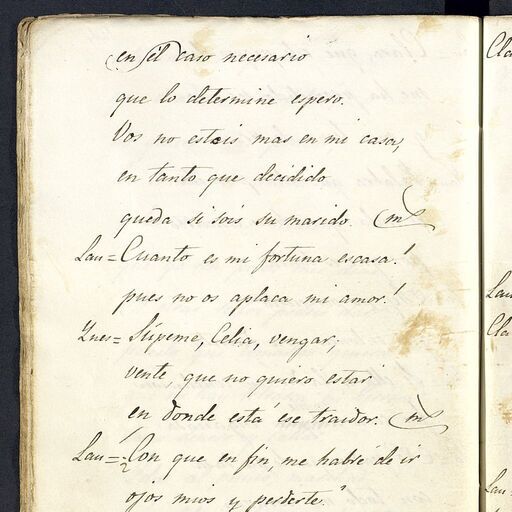 en él caso necesario
que lo determine espero.
Vos no esteis mas en mi casa,
en tanto que decidido
queda si sois su marido.
Lau = Cuanto es mi fortuna escasa!
pues no os aplaca mi amor!
Ynes = Súpeme, Celia, vengar;
vente, que no quiero estar
en donde está ese traidor.
Lau = ¿Con que en fin, me habré de ir
ojos mios y perderte?
Cla
Lau
Cla
Lau